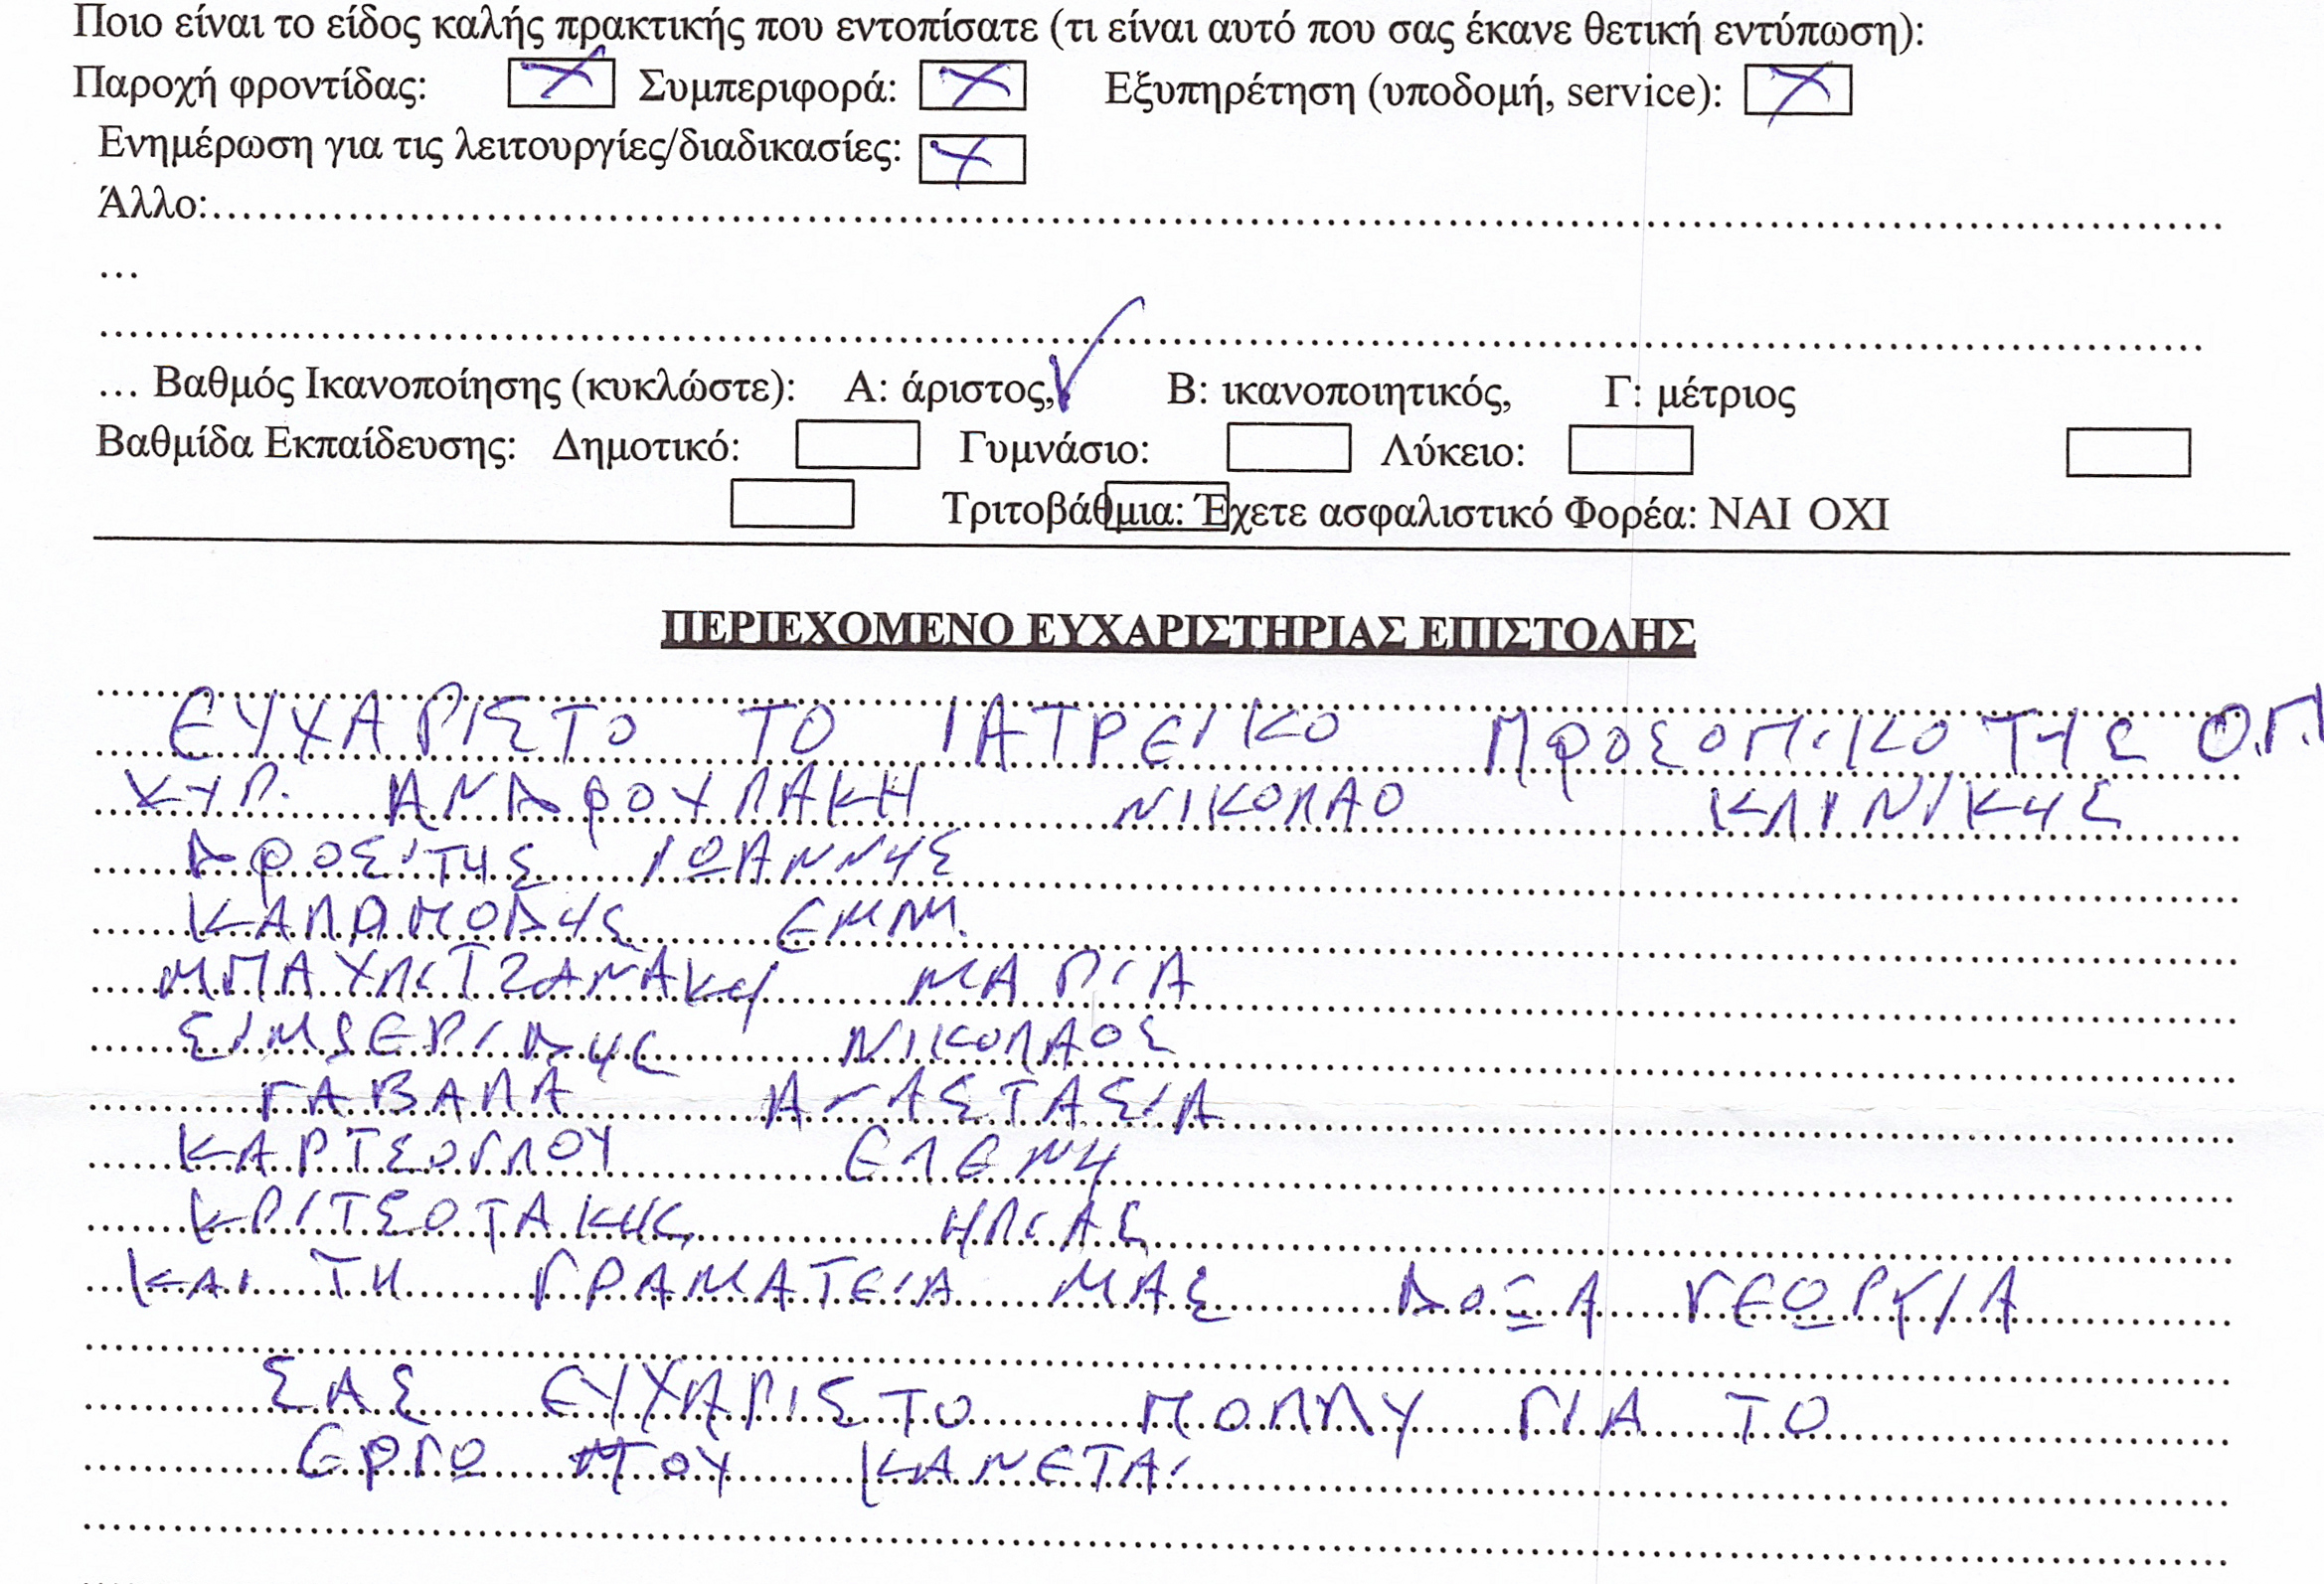 Ποιο είναι το είδος καλής πρακτικής που εντοπίσατε (τι είναι αυτό που σας έκανε θετική εντύπωση):
Παροχή φροντίδας: X Συμπεριφορά: X Εξυπηρέτηση (υποδομή, service): X
Ενημέρωση για τις λειτουργίες/διαδικασίες: X
Άλλο:..........
...
..........
... Βαθμός Ικανοποίησης (κυκλώστε): Α: άριστος, ✓ Β: ικανοποιητικός, Γ: μέτριος
Βαθμίδα Εκπαίδευσης: Δημοτικό: Γυμνάσιο: Λύκειο:
Τριτοβάθμια: Έχετε ασφαλιστικό Φορέα: ΝΑΙ ΟΧΙ
ΠΕΡΙΕΧΟΜΕΝΟ ΕΥΧΑΡΙΣΤΗΡΙΑΣ ΕΠΙΣΤΟΛΗΣ
ΕΥΧΑΡΙΣΤΟ ΤΟ ΙΑΤΡΕΙΚΟ ΠΡΟΣΟΠΙΚΟ ΤΗΣ
ΑΝΔΡΟΥΛΑΚΗ ΝΙΚΟΛΑΟ ΚΛΙΝΙΚΗΣ
ΔΡΟΣΙΤΗΣ ΙΩΑΝΝΗΣ
ΚΑΛΟΜΟΔΗΣ ΕΜΜ.
ΜΠΑΧΛΙΤΖΑΝΑΚΗ ΜΑΡΙΑ
ΝΙΚΟΛΑΟΣ
ΓΑΒΑΛΑ ΑΝΑΣΤΑΣΙΑ
ΚΑΡΤΣΟΓΛΟΥ ΕΛΕΝΗ
ΚΡΙΤΣΟΤΑΚΗΣ ΗΛΙΑΣ
ΚΑΙ ΤΗ ΓΡΑΜΑΤΕΙΑ ΜΑΣ ΔΟΞΑ ΓΕΩΡΓΙΑ
ΣΑΣ ΕΥΧΑΡΙΣΤΟ ΠΟΛΛΥ ΓΙΑ ΤΟ
ΕΡΓΟ ΠΟΥ ΚΑΝΕΤΑΙ